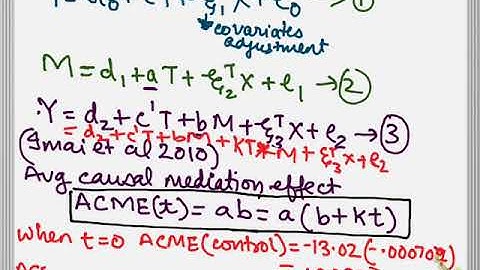 ξ₁ᵀX + e₀ → ①
↳ covariates
adjustment
M = d₁ + aT + ξ₂ᵀX + e₁ → ②
Y = d₂ + c'T + bM + ξ₃ᵀX + e₂ → ③
= d₂ + c'T + bM + KT*M + ξ₃ᵀX + e₂
(Imai et al 2010)
Avg causal mediation effect
ACME(t) = ab = a(b + kt)
when t=0 ACME(control) = -13.02(-.000709)